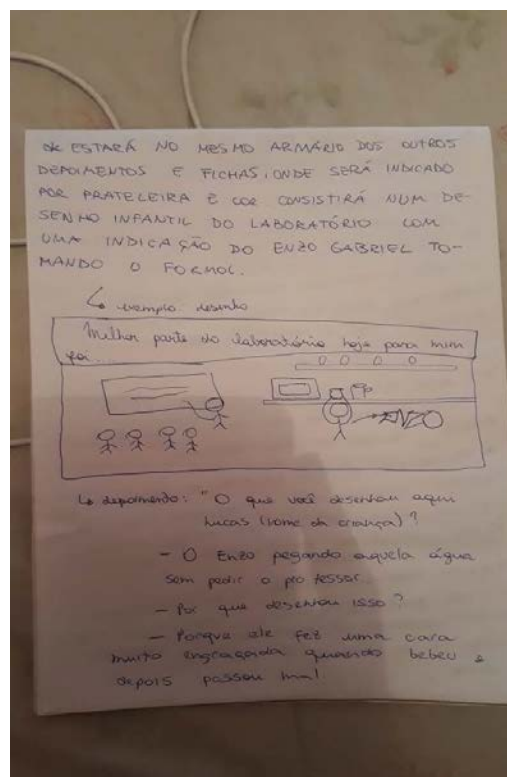 * ESTARÁ NO MESMO ARMÁRIO DOS OUTROS
DEPOIMENTOS E FICHAS, ONDE SERÁ INDICADO
POR PRATELEIRA E COR CONSISTIRÁ NUM DE-
SENHO INFANTIL DO LABORATÓRIO COM
UMA INDICAÇÃO DO ENZO GABRIEL TO-
MANDO O FORMOL.
↳ exemplo desenho
Melhor parte do laboratório hoje para mim
foi...
ENZO
↳ depoimento: "O que você desenhou aqui
Lucas (nome da criança)?
- O Enzo pegando aquela água
sem pedir o professor.
- Por que desenhou isso?
- Porque ele fez uma cara
muito engraçada quando bebeu e
depois passou mal.